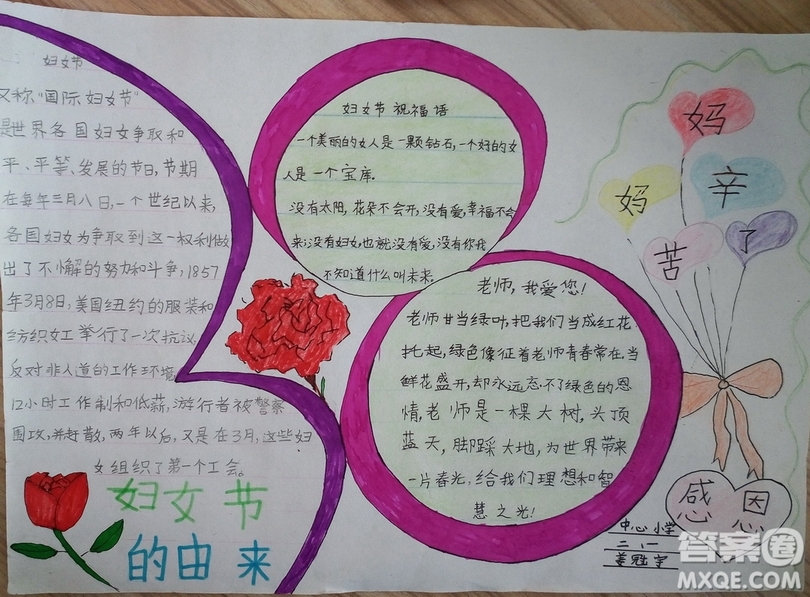 妇女节
又称“国际妇女节”
是世界各国妇女争取和
平、平等、发展的节日,节期
在每年三月八日,一个世纪以来,
各国妇女为争取到这一权利做
出了不懈的努力和斗争,1857
年3月8日,美国纽约的服装和
纺织女工举行了一次抗议
反对非人道的工作环境
12小时工作制和低薪,游行者被警察
围攻,并赶散,两年以后,又是在3月,这些妇
女组织了第一个工会。
妇女节
的由来
妇女节祝福语
一个美丽的女人是一颗钻石,一个好的女
人是一个宝库.
没有太阳,花朵不会开,没有爱,幸福不会
来;没有妇女,也就没有爱,没有你我
不知道什么叫未来.
老师,我爱您!
老师甘当绿叶,把我们当成红花
扎起,绿色像征着老师青春常在,当
鲜花盛开,却永远忘不了绿色的恩
情,老师是一棵大树,头顶
蓝天,脚踩大地,为世界带来
一片春光,给我们理想和智
慧之光!
妈
妈
辛
苦
了
感恩
中心小学
二、一
姜胜宇
答案圈
MXQE.COM